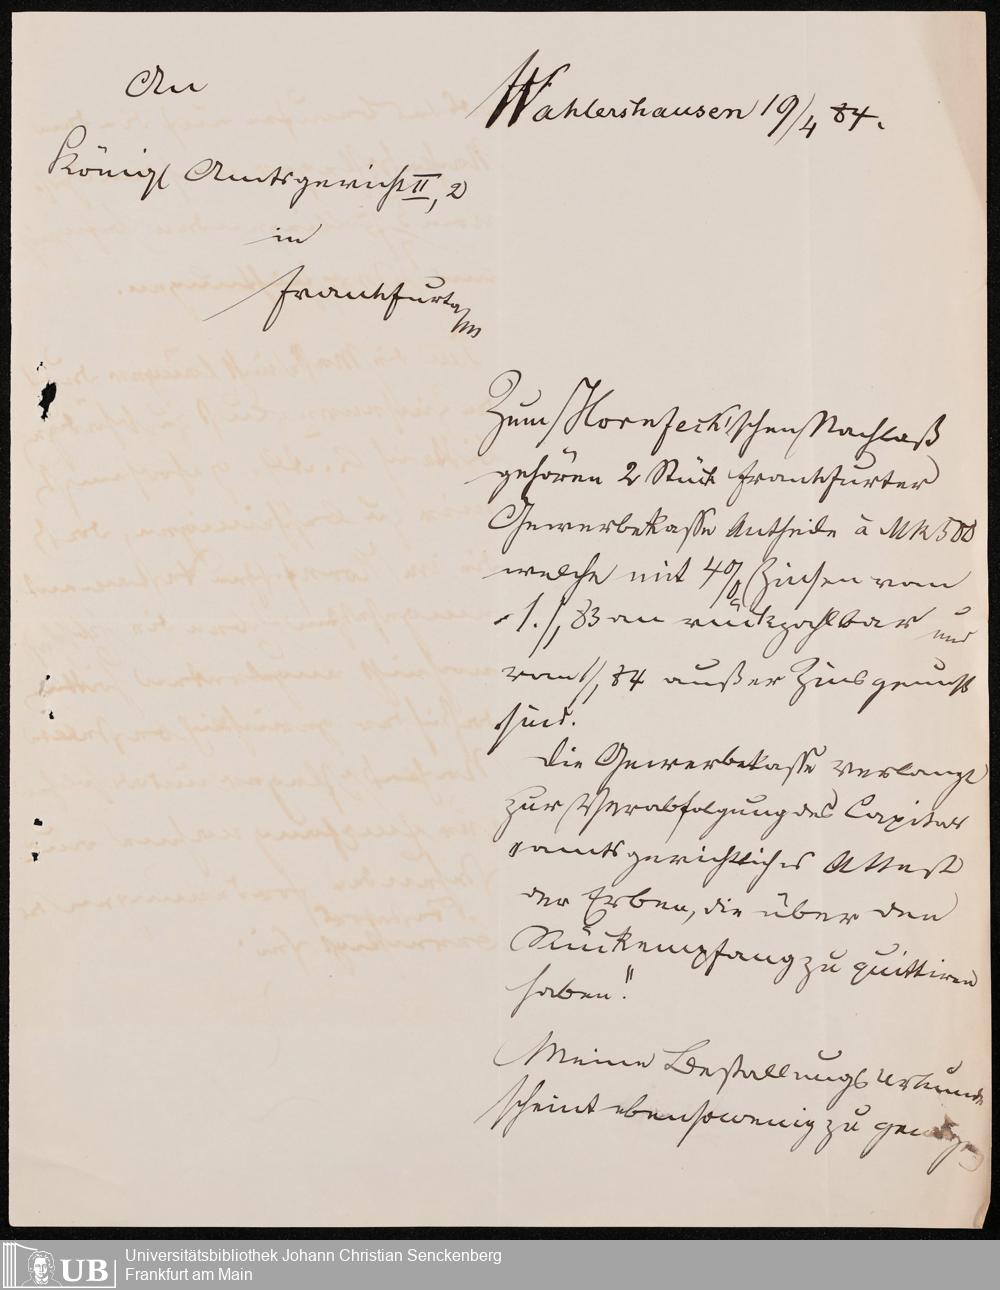 An
Königl Amtsgericht II, 2
in
Frankfurt a/m
Wahlershausen 19/4 84.
Zum Hornfeck'schen Nachlaß
gehören 2 Stück Frankfurter
Gewerbekasse Antheile à Mk 500
welche mit 4% Zinsen vom
1./1, 83 an rückzahlbar und
vom 1/1, 84 außer Zins gesetzt
sind.
Die Gewerbekasse verlangt
zur Verabfolgung des Capitals
"amtsgerichtliches Attest
der Erben, die über den
Rückempfang zu quittiren
haben."
Meine Bestallungsurkunde
scheint ebensowenig zu genügen
UB
Universitätsbibliothek Johann Christian Senckenberg
Frankfurt am Main